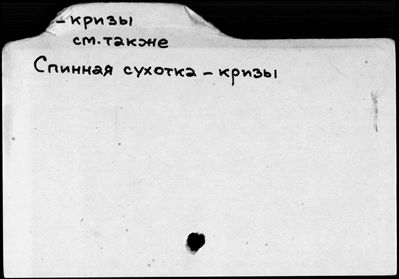 - кризы
см. также
Спинная сухотка - кризы